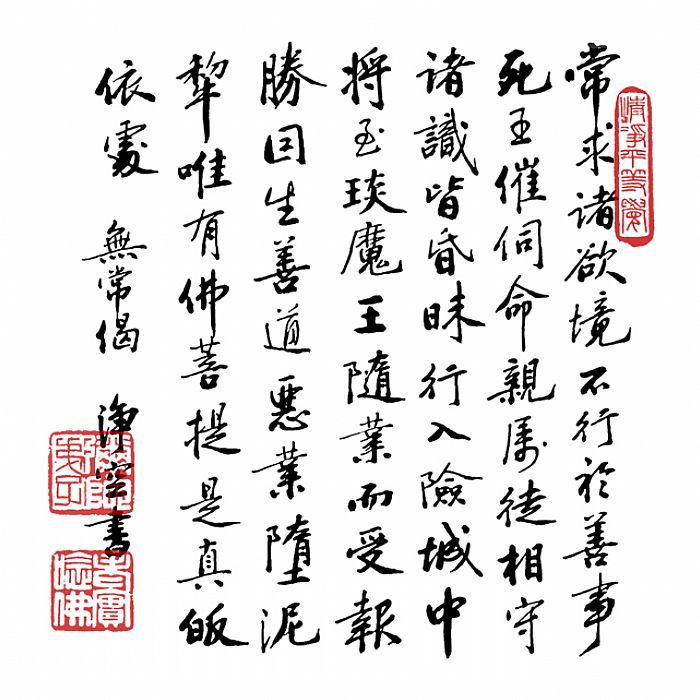 清淨平等覺
常求諸欲境不行於善事
死王催伺命親属徒相守
諸識皆昏昧行入險城中
将至琰魔王隨業而受報
勝因生善道惡業墮泥
犂唯有佛菩提是真皈
依處 無常偈 淨空書
老實念佛